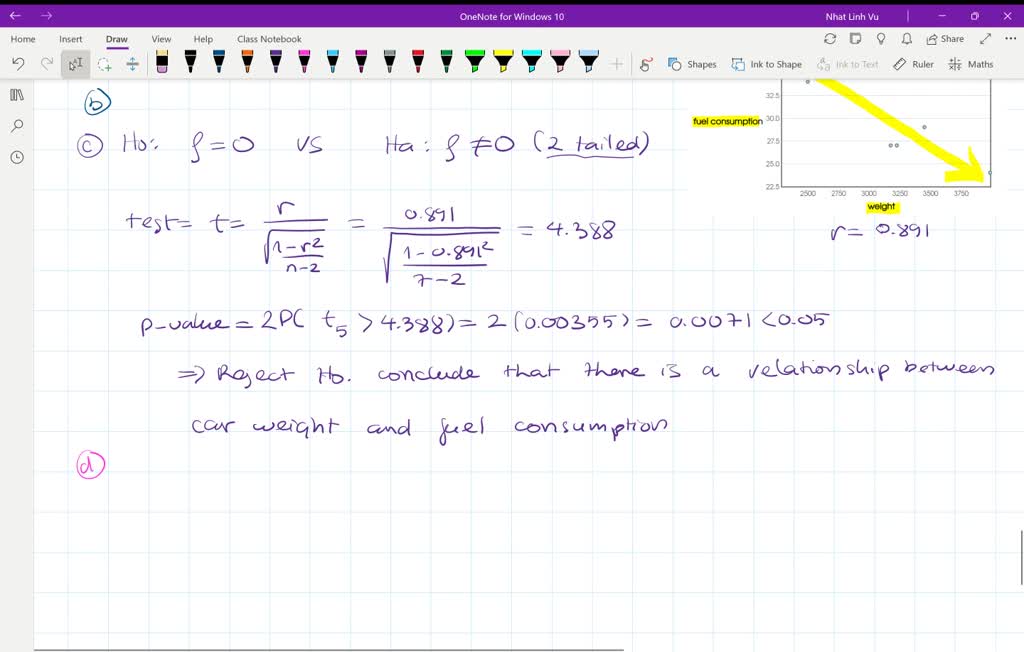 OneNote for Windows 10
Nhat Linh Vu
Home Insert Draw View Help Class Notebook
Share
Shapes Ink to Shape Ink to Text Ruler Maths
b
c Ho: ρ = 0 vs Ha: ρ ≠ 0 (2 tailed)
test = t = r / √((1-r²)/(n-2)) = 0.891 / √((1-0.891²)/(7-2)) = 4.388
p-value = 2P( t5 > 4.388) = 2(0.00355) = 0.0071 < 0.05
⇒ Reject Ho. conclude that there is a relationship between
car weight and fuel consumption
d
32.5
fuel consumption 30.0
27.5
25.0
22.5
2500 2750 3000 3250 3500 3750
weight
r = 0.891